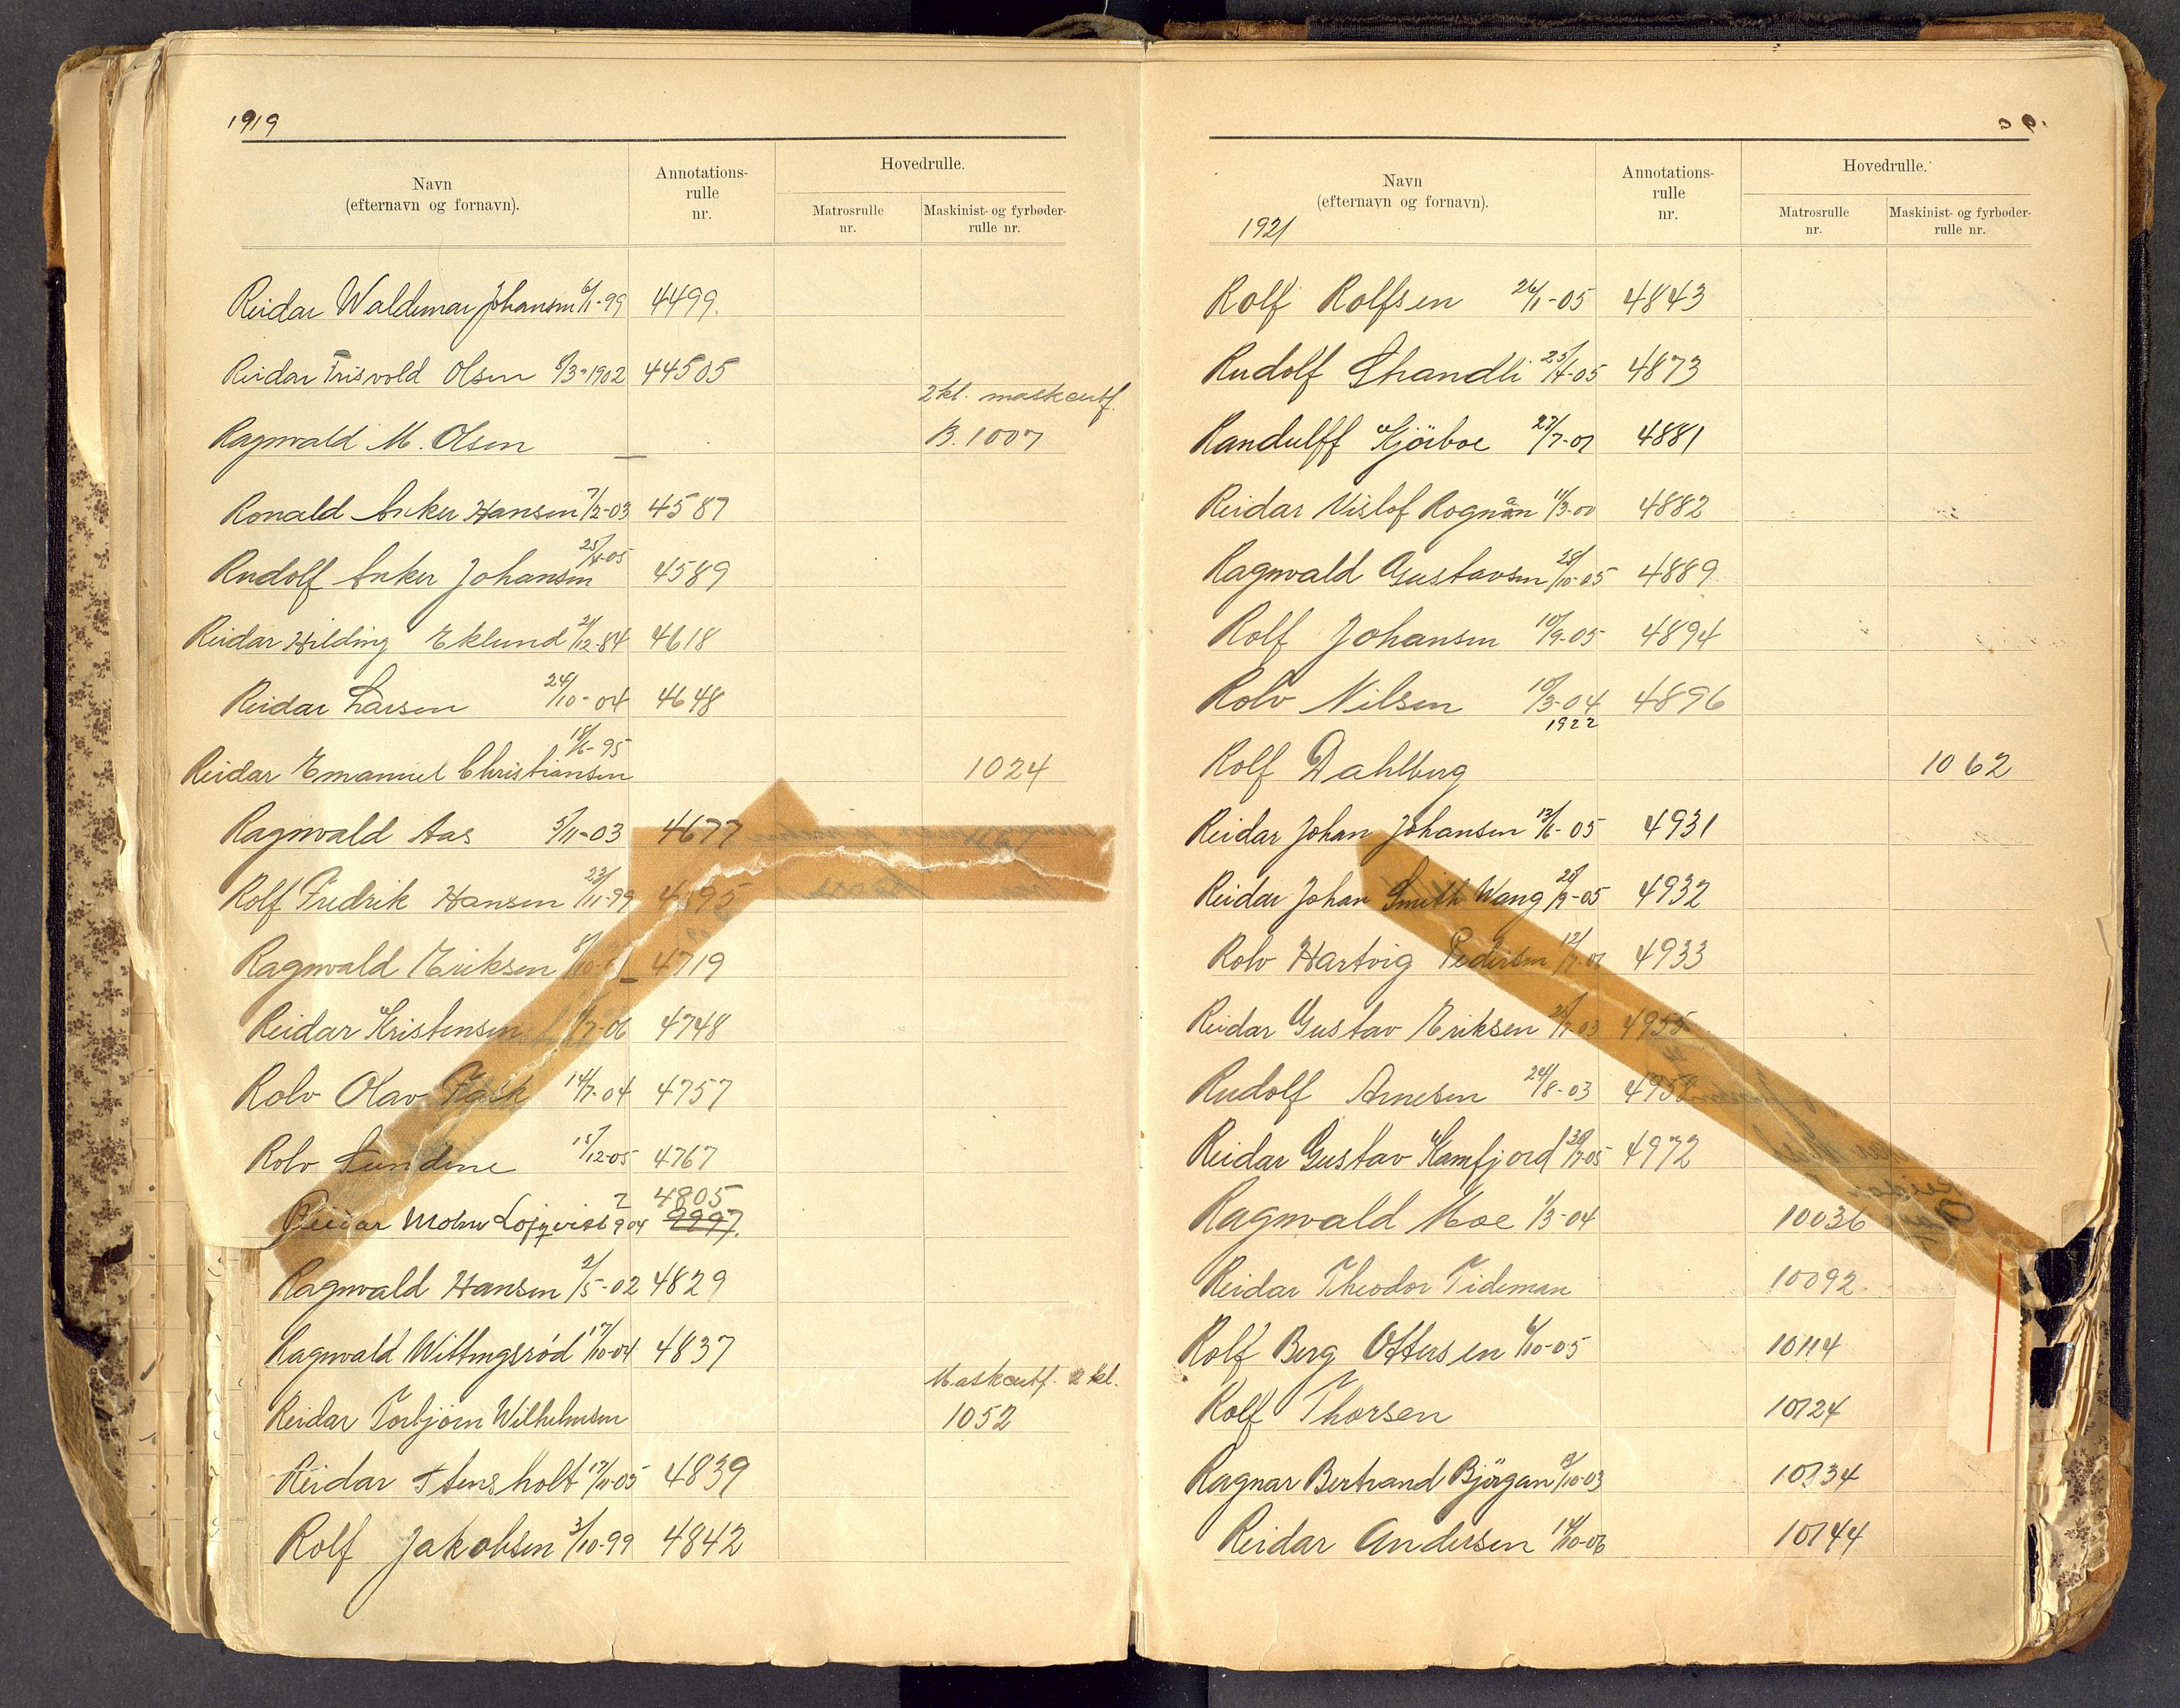 1919
Navn
(efternavn og fornavn).
Annotations-
rulle
nr.
Hovedrulle.
Matrosrulle
nr.
Maskinist- og fyrbøder-
rulle nr.
Reidar Waldemar Johansen 6/1-99 4499
Reidar Frisvold Olsen 8/3-1902 44505
2 kl. maskcertf.
Ragnvald M. Olsen — B. 1007
Ronald Anker Hansen 7/2-03 4587
Rudolf Anker Johansen 25/4-05 4589
Reidar Hilding Eklund 21/12-84 4618
Reidar Larsen 24/10-04 4648
Reidar Emanuel Christiansen 18/6-95 1024
Ragnvald Aas 5/11-03 4677
Rolf Fredrik Hansen 23/11-99 4695
Ragnvald Eriksen 8/10- 4719
Reidar Kristensen /7-06 4748
Rolv Olav Falck 14/7-04 4757
Rolv Sundene 15/12-05 4767
4805
Reidar Molin Lofqvist 2 904 9997
Ragnvald Hansen 2/5-02 4829
Ragnvald Wittingsrød 17/10-04 4837
Maskcertf. 2 kl.
Reidar Torbjörn Wilhelmsen 1052
Reidar Stensholt 17/11-05 4839
Rolf Jakobsen 3/10-99 4842
Navn
(efternavn og fornavn).
1921
Annotations-
rulle
nr.
Hovedrulle.
Matrosrulle
nr.
Maskinist- og fyrbøder-
rulle nr.
Rolf Rolfsen 26/1-05 4843
Rudolf Strandli 25/4-05 4873
Randulff Kjörboe 27/7-01 4881
Reidar Nislof Rognan 11/3-00 4882
Ragnvald Gustavsen 28/10-05 4889
Rolf Johansen 10/9-05 4894
Rolv Nilsen 10/3-04 4896
1922
Rolf Dahlberg 1062
Reidar Johan Johansen 13/6-05 4931
Reidar Johan Smith Wang 28/9-05 4932
Rolv Hartvig Pedersen 12/7-06 4933
Reidar Gustav Eriksen 4955
Rudolf Arnesen 24/8-03 4958
Reidar Gustav Kamfjord 30/7-05 4972
Ragnvald Moe 1/3-04 10036
Reidar Theodor Tideman 10092
Rolf Berg Ottersen 6/10-05 10114
Rolf Thorsen 10124
Ragnar Bertrand Björgan /10-03 10134
Reidar Andersen 14/10-06 10144